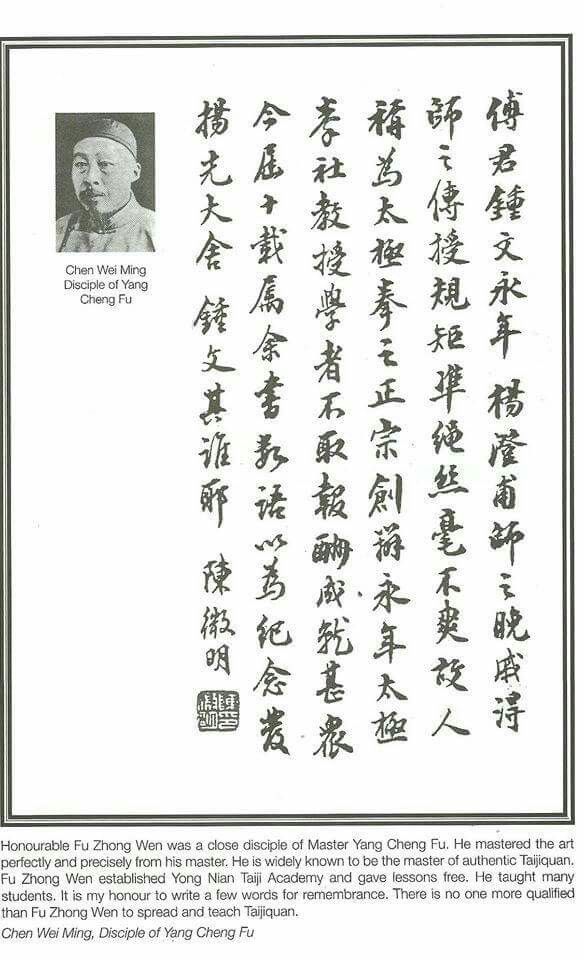 傅君鍾文永年 楊澄甫師之晚戚得
師之傳授規矩準繩丝毫不爽故人
稱為太極拳之正宗創辦永年太極
拳社教授學者不取報酬成就甚眾
今屆十載屬余書數語以為紀念發
揚光大舍 鍾文其誰耶 陳微明
Chen Wei Ming
Disciple of Yang
Cheng Fu
Honourable Fu Zhong Wen was a close disciple of Master Yang Cheng Fu. He mastered the art
perfectly and precisely from his master. He is widely known to be the master of authentic Taijiquan.
Fu Zhong Wen established Yong Nian Taiji Academy and gave lessons free. He taught many
students. It is my honour to write a few words for remembrance. There is no one more qualified
than Fu Zhong Wen to spread and teach Taijiquan.
Chen Wei Ming, Disciple of Yang Cheng Fu